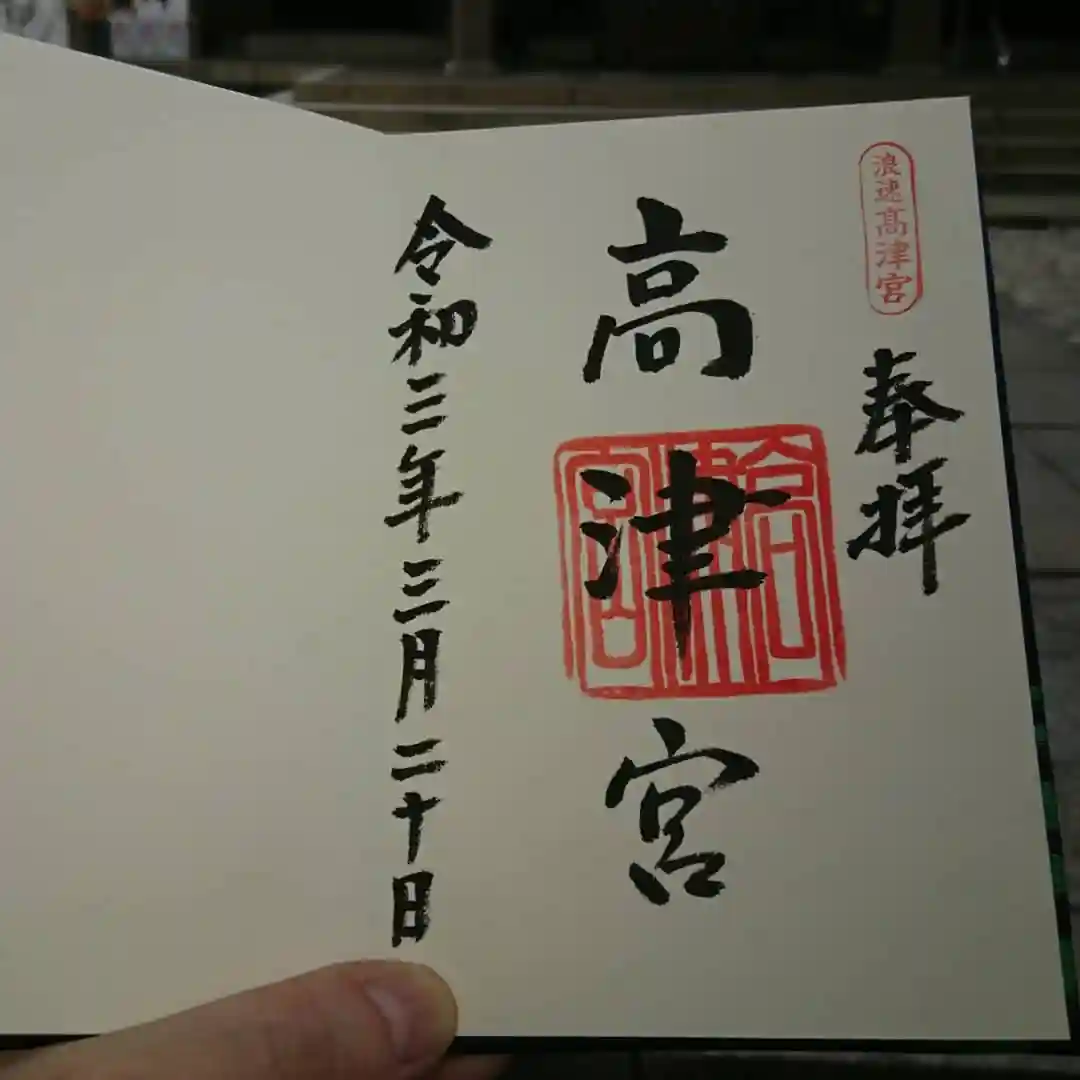 浪速高津宮
奉拝
高津宮
令和三年三月二十日